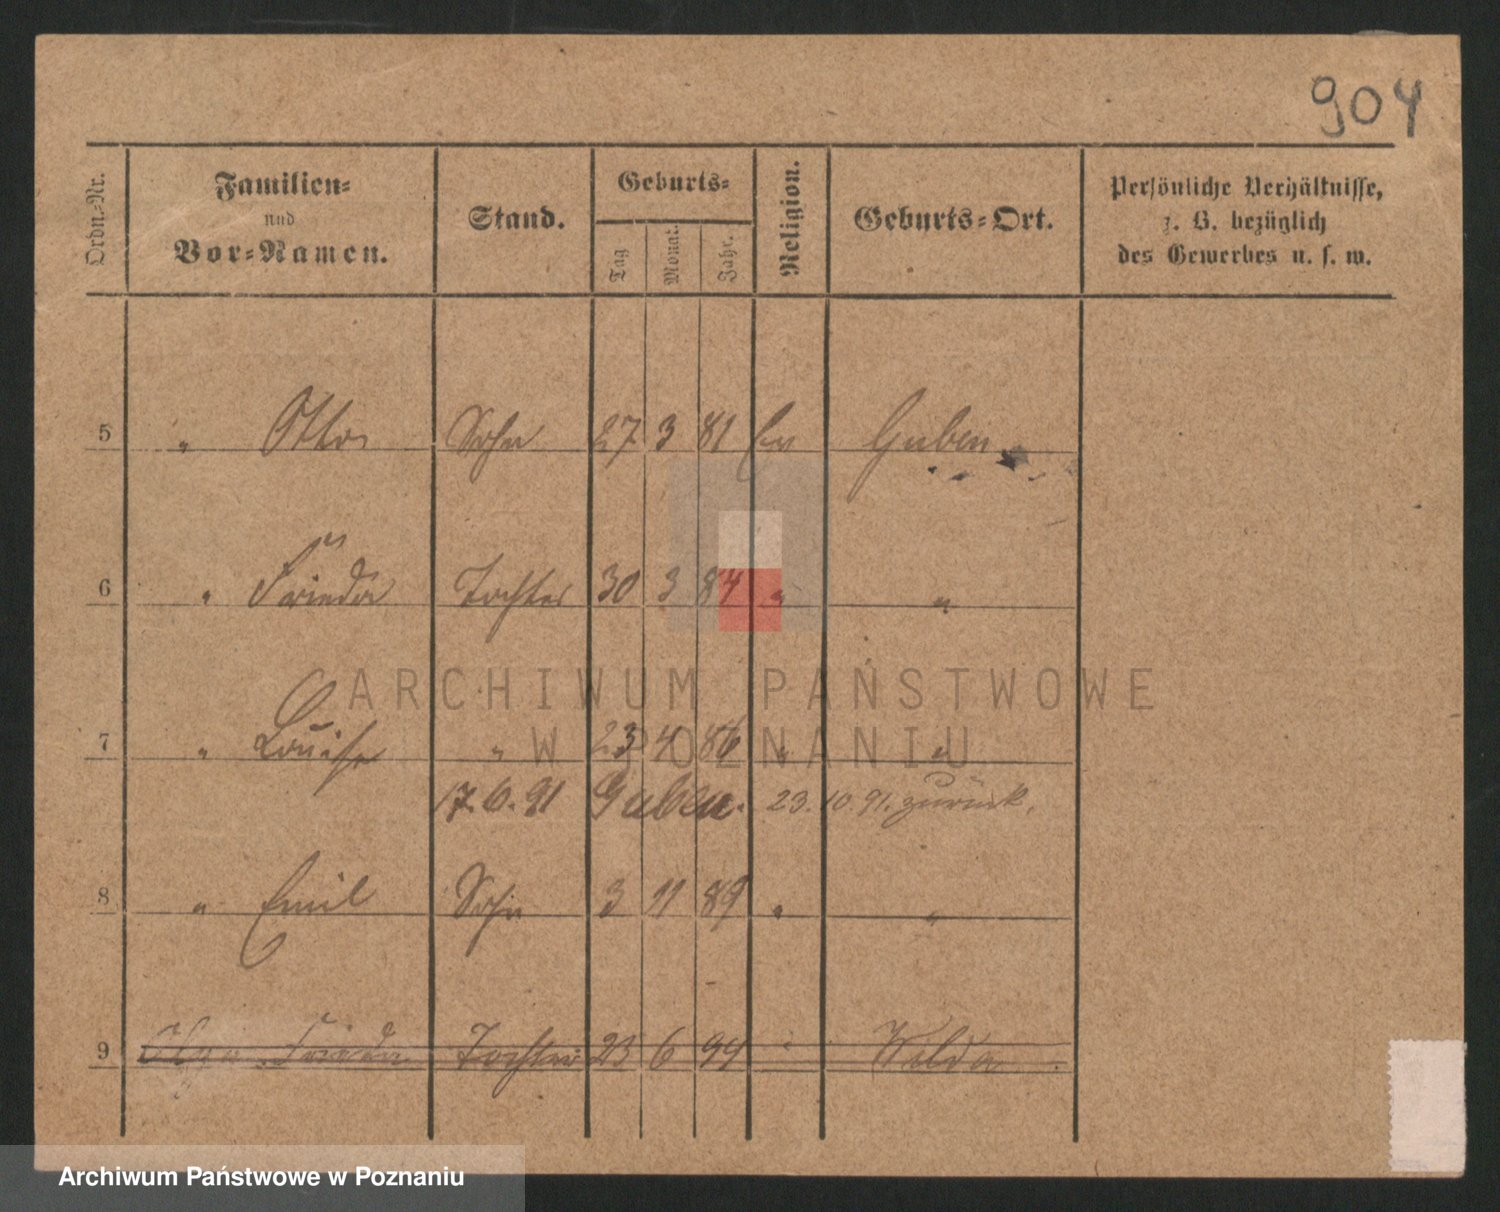 904
Ordn.-Nr. Familien- und Vor-Namen. Stand. Geburts- Tag Monat. Jahr. Religion. Geburts-Ort. Persönliche Verhältnisse, z. B. bezüglich des Gewerbes u. s. w.
5 " Otto Sohn 27 3 81 Ev Guben
6 " Frieda Tochter 30 3 84 " "
ARCHIWUM PAŃSTWOWE
W POZNANIU
7 " Louise " 23 4 86 " "
17.6.91 Guben. 23.10.91. zurück.
8 " Emil Sohn 3 11 89 " "
9 Frieda Tochter 23 6 94 " Wilda
Archiwum Państwowe w Poznaniu